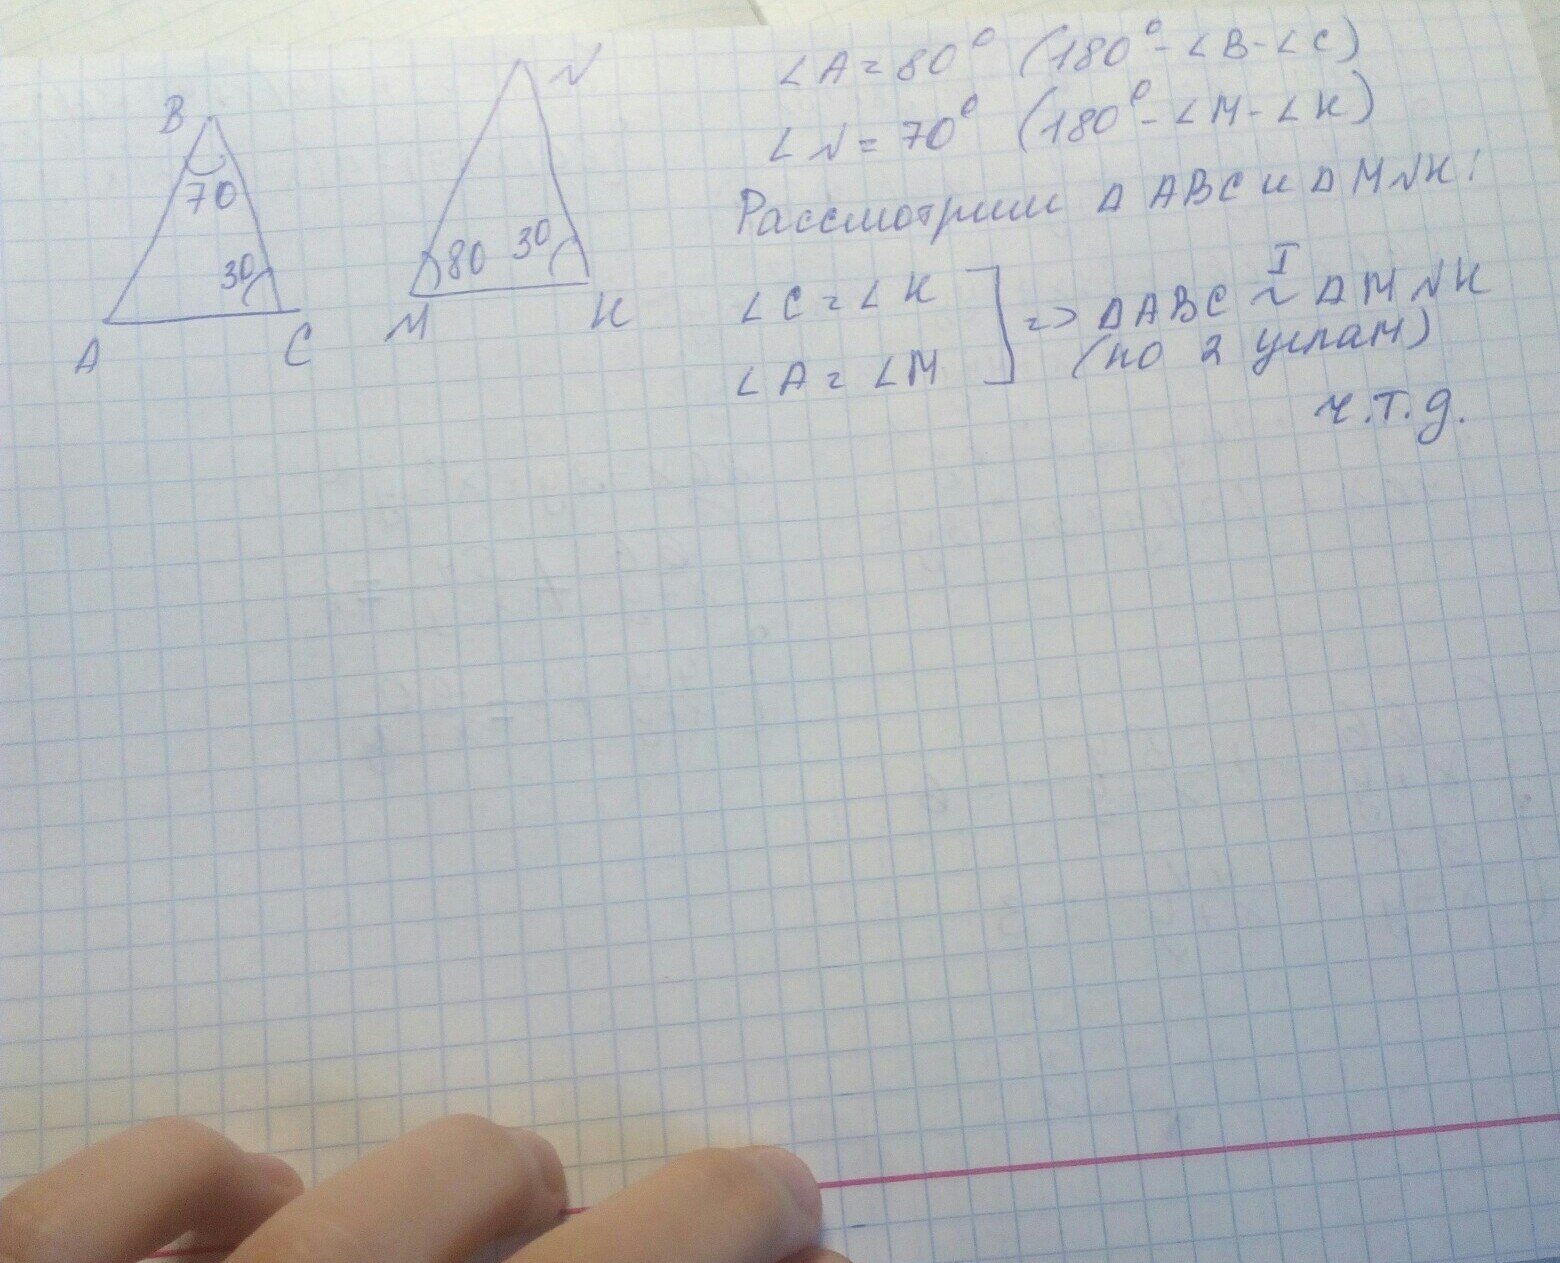 B
70
30
A
C
N
80 30
M
K
∠A = 80° (180° - ∠B - ∠C)
∠N = 70° (180° - ∠M - ∠K)
Рассмотрим Δ ABC и Δ MNK:
∠C = ∠K
∠A = ∠M
=> ΔABC ~ ΔMNK
I
(по 2 углам)
ч.т.д.